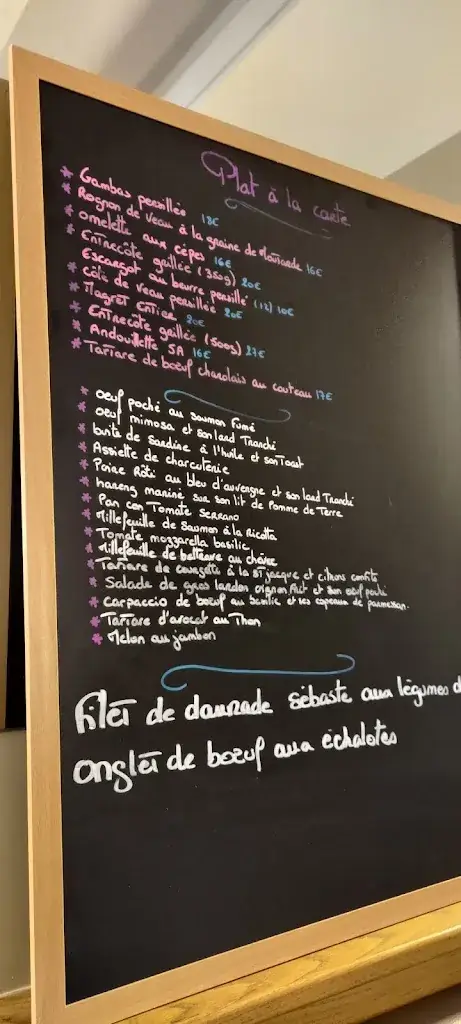 Plat à la carte
* Gambas persillées 18€
* Rognon de veau à la graine de Moutarde 16€
* omelette aux cèpes 16€
* Entrecôte grillée (350g) 20€
* Escargot au beurre persillé (12) 10€
* côte de veau persillée 20€
* Magret Entier 20€
* Entrecôte grillée (500g) 27€
* Andouillette 5A 16€
* Tartare de boeuf charolais au couteau 17€
* oeuf poché au saumon fumé
* oeuf mimosa et son lard Tranché
* boîte de Sardine à l'huile et son Toast
* Assiette de charcuterie
* Poire Rôti au bleu d'auvergne et son lard Tranché
* hareng mariné sur son lit de Pomme de Terre
* Pan con Tomate Serrano
* Millefeuille de Saumon à la Ricotta
* Tomate mozzarella basilic
* Millefeuille de betterave au chèvre
* Tartare de courgette à la St jacque et citrons confits
* Salade de gros lardon oignon frit et son oeuf poché
* Carpaccio de boeuf au basilic et ses copeaux de parmesan.
* Tartare d'avocat au Thon
* Melon au jambon
Filet de daurade sébaste aux légumes d
onglet de boeuf aux échalotes